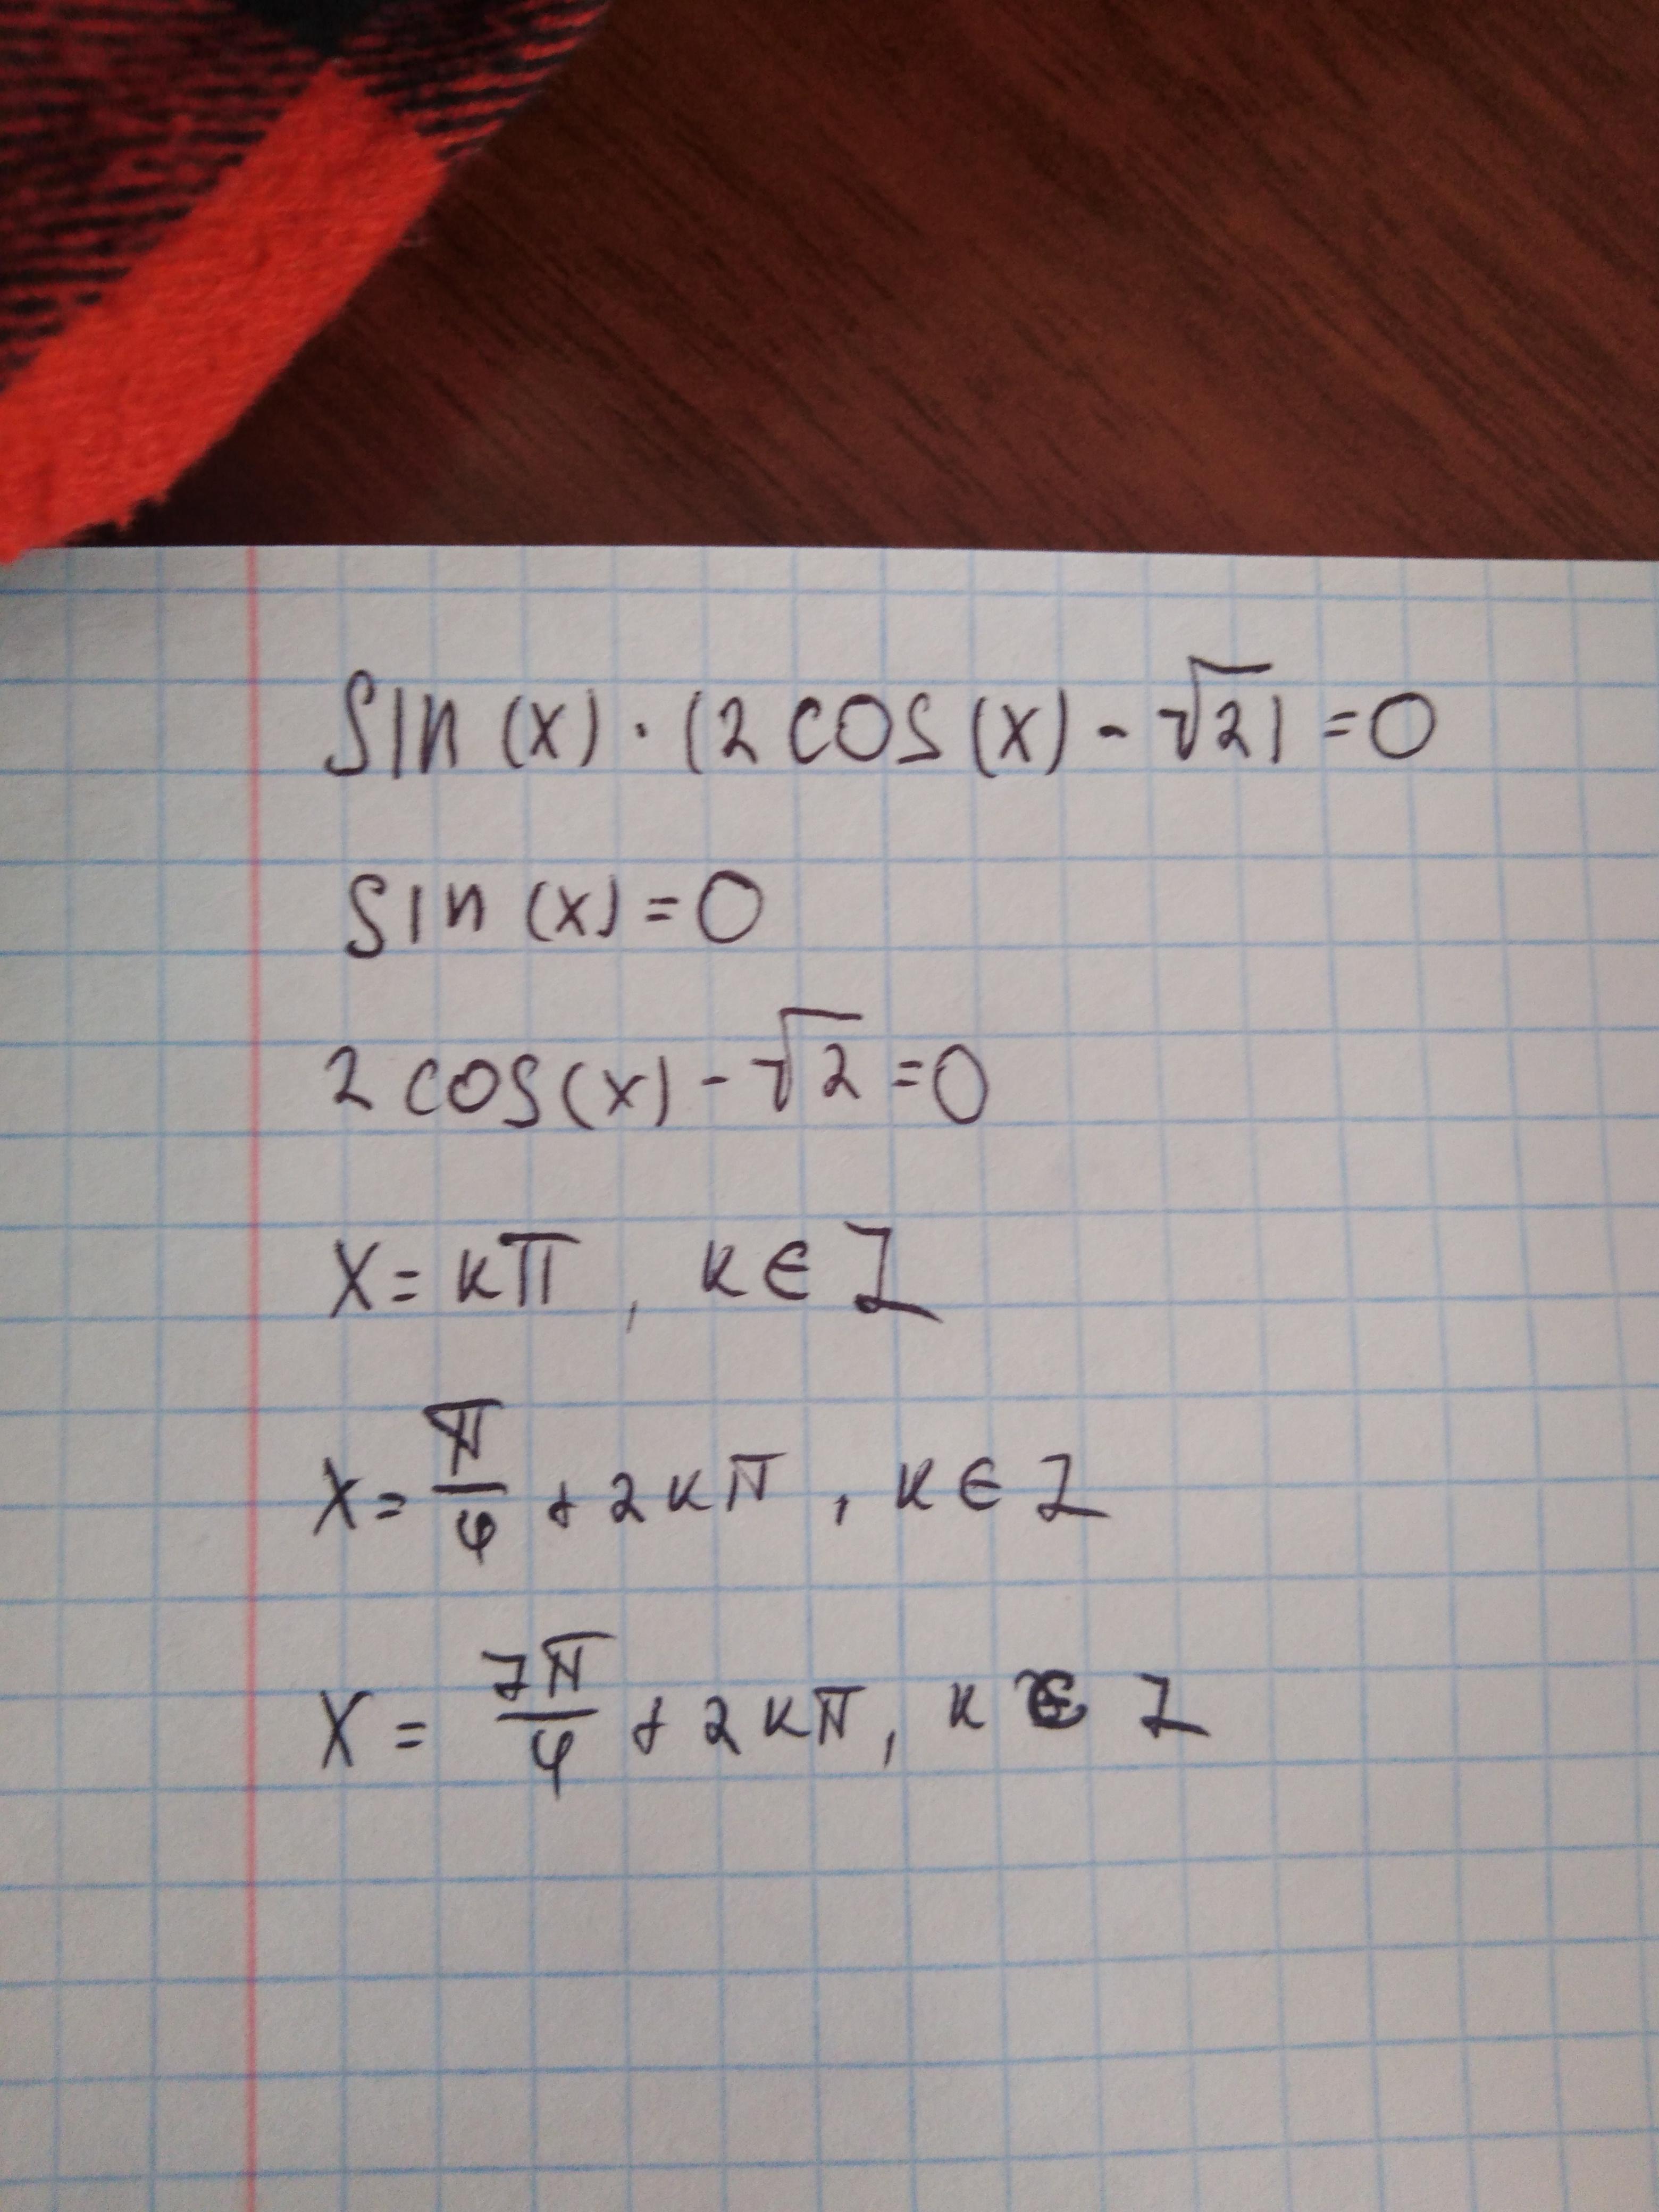 sin (x) · (2 cos (x) - √2) = 0
sin (x) = 0
2 cos(x) - √2 = 0
x = kπ , k ∈ Z
x = π/4 + 2kπ , k ∈ Z
x = 7π/4 + 2kπ, k ∈ Z